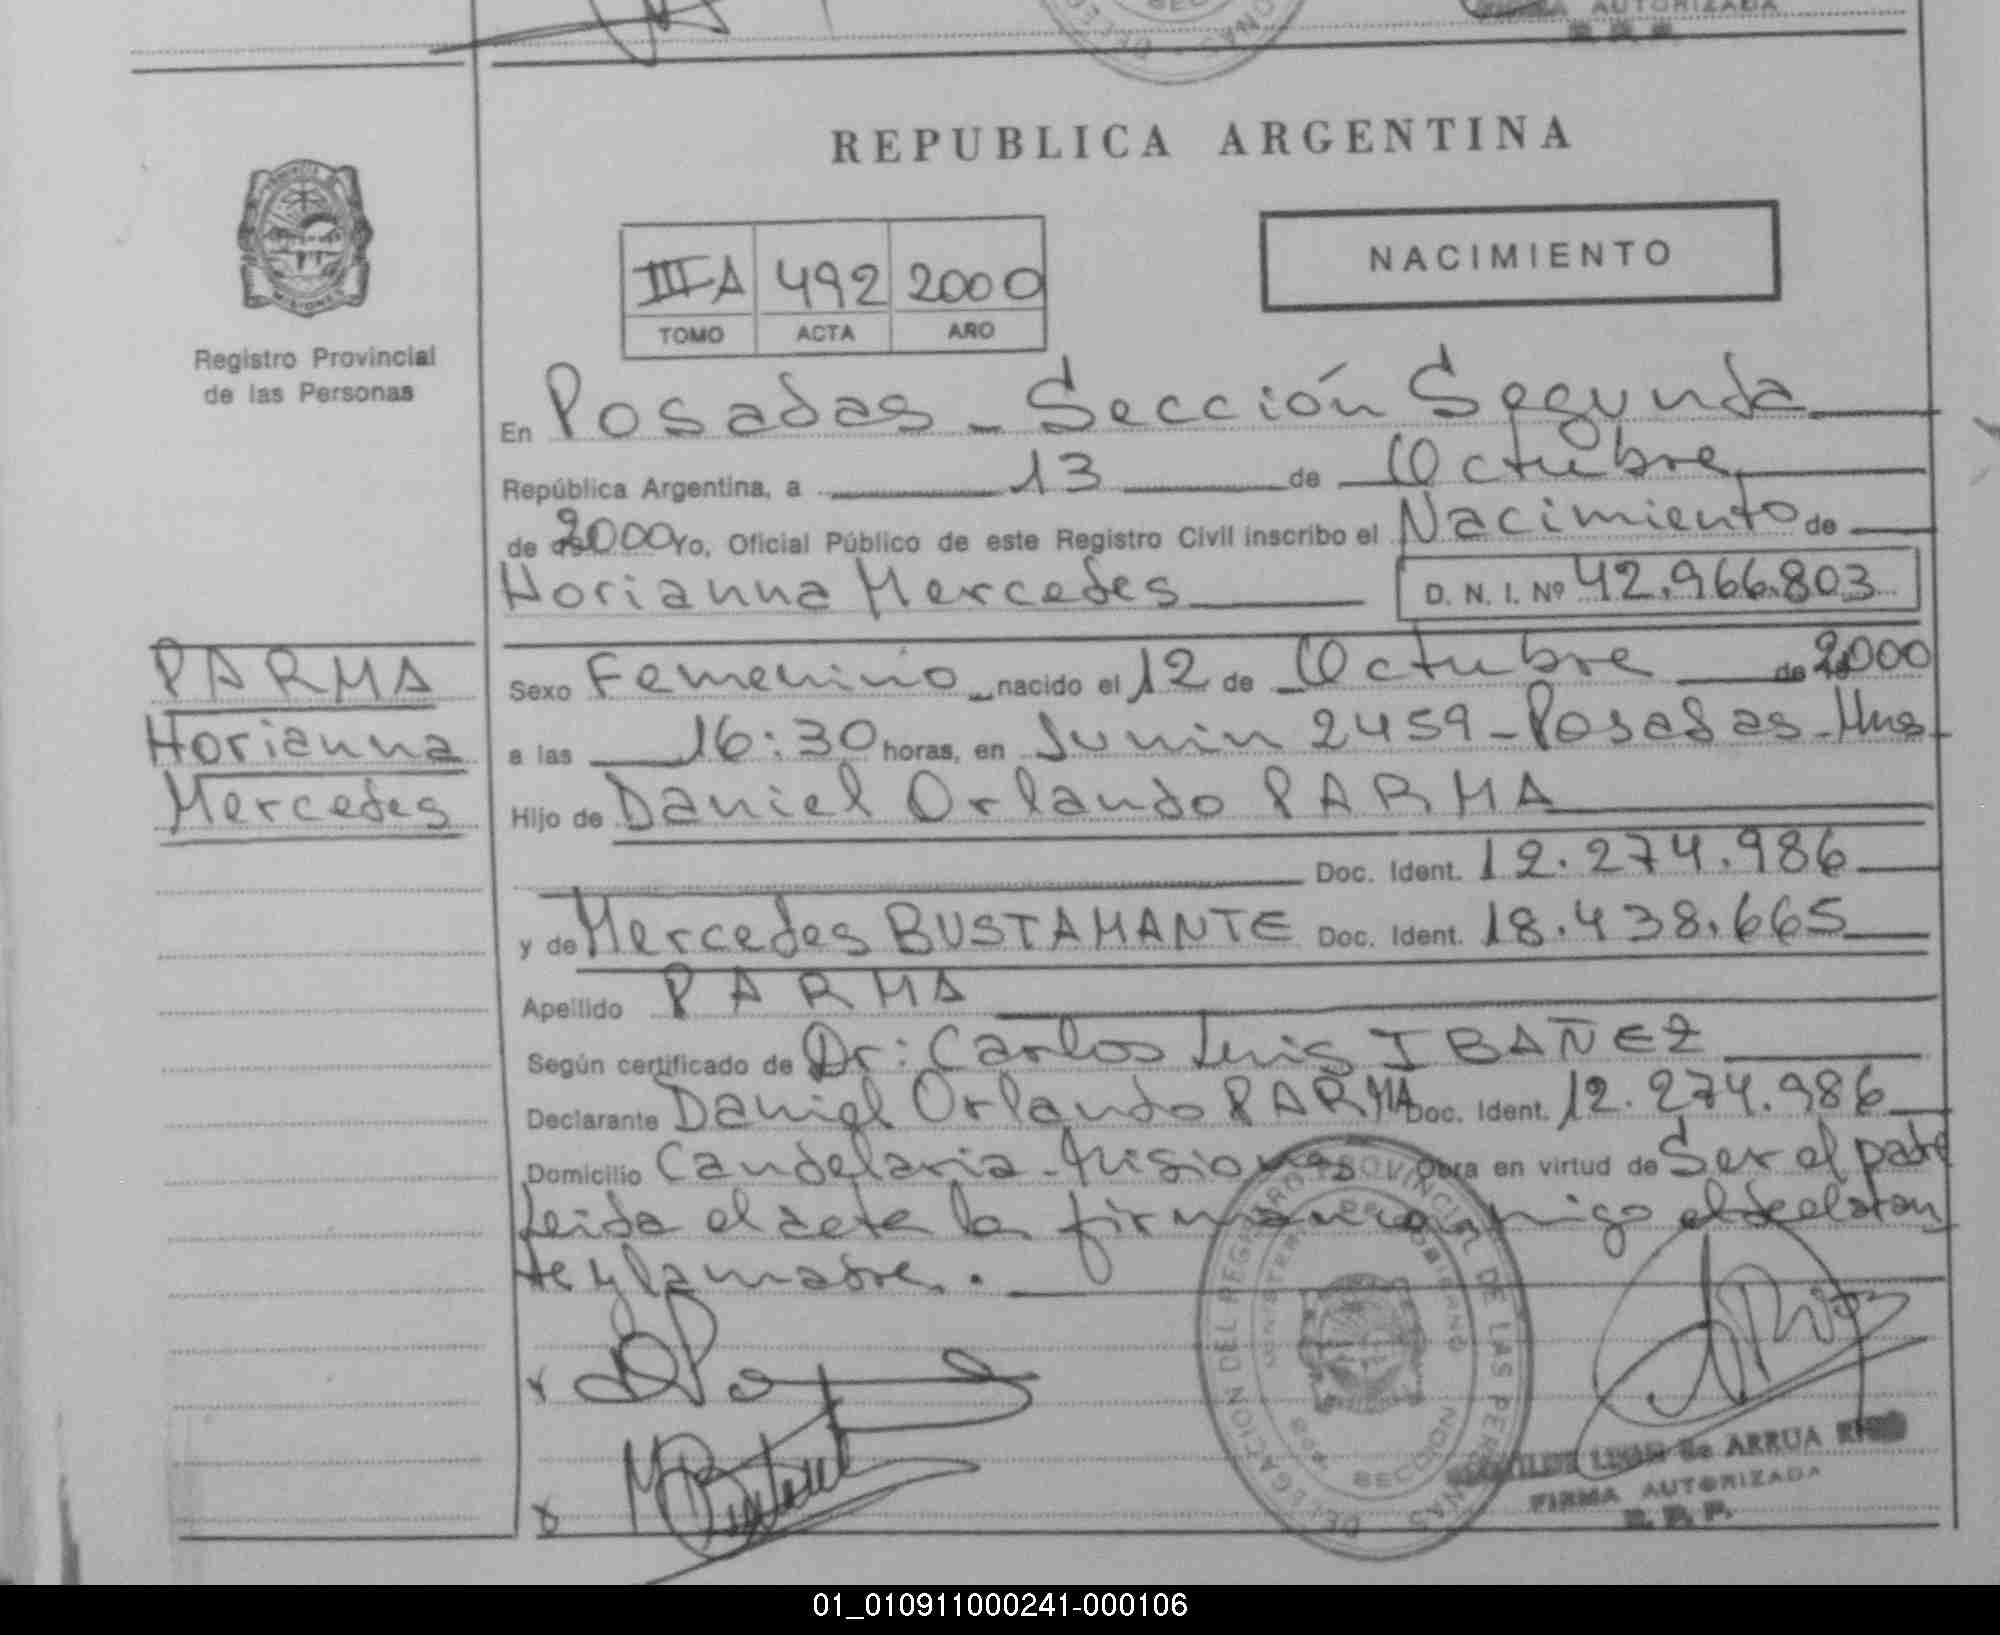 AUTORIZADA
REPUBLICA ARGENTINA
NACIMIENTO
III-A 492 2000
TOMO ACTA AÑO
Registro Provincial
de las Personas
En Posadas - Sección Segunda
República Argentina, a 13 de Octubre
de 2000 Yo, Oficial Público de este Registro Civil inscribo el Nacimiento de
Horianna Mercedes D. N. I. Nº 42.966.803
PARMA
Horianna
Mercedes
Sexo Femenino nacido el 12 de Octubre de 2000
a las 16:30 horas, en Junin 2459 - Posadas - Mnes
Hijo de Daniel Orlando PARMA
Doc. Ident. 12.274.986
y de Mercedes BUSTAMANTE Doc. Ident. 18.438.665
Apellido PARMA
Según certificado de Dr: Carlos Luis IBAÑEZ
Declarante Daniel Orlando PARMA Doc. Ident. 12.274.986
Domicilio Candelaria - Misiones Obra en virtud de Ser el padre
Leida el acta la firman conmigo el declaran
te y la madre.
DELEGACION DEL REGISTRO PROVINCIAL DE LAS PERSONAS
SECCION
de ARRUA
FIRMA AUTORIZADA
R. P. P.
01_010911000241-000106